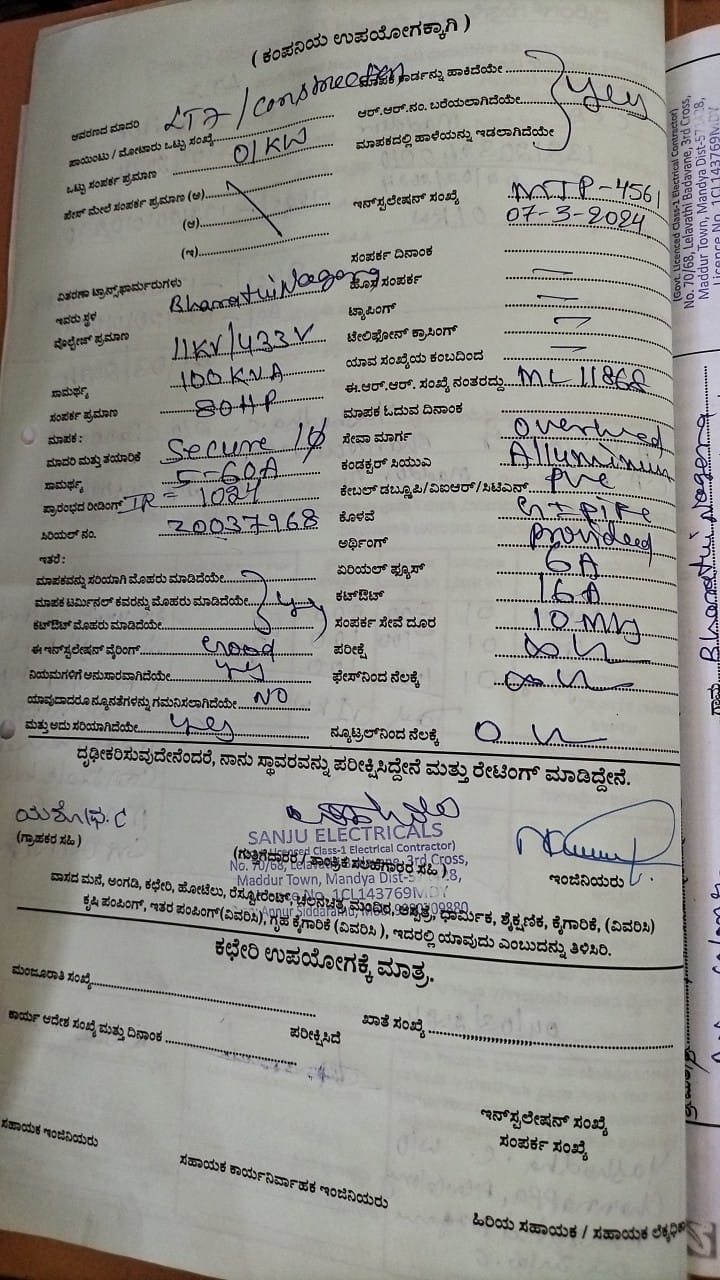 ( ಕಂಪನಿಯ ಉಪಯೋಗಕ್ಕಾಗಿ )
ಆವರಣದ ಮಾದರಿ LT7/construction
ಪಾಯಿಂಟು / ಮೋಟಾರು ಒಟ್ಟು ಸಂಖ್ಯೆ
ಒಟ್ಟು ಸಂಪರ್ಕ ಪ್ರಮಾಣ 01KW
ಫೇಸ್ ಮೇಲೆ ಸಂಪರ್ಕ ಪ್ರಮಾಣ (ಅ)
(ಆ)
(ಇ)
ವಿತರಣಾ ಟ್ರಾನ್ಸ್‌ಫಾರ್ಮರುಗಳು
ಇವರು ಸ್ಥಳ Bharathi Nagara
ವೋಲ್ಟೇಜ್ ಪ್ರಮಾಣ 11KV/433V
ಸಾಮರ್ಥ್ಯ 100KVA
ಸಂಪರ್ಕ ಪ್ರಮಾಣ 80HP
ಮಾಪಕ :
ಮಾದರಿ ಮತ್ತು ತಯಾರಿಕೆ Secure 1φ
ಸಾಮರ್ಥ್ಯ 5-60A
ಪ್ರಾರಂಭದ ರೀಡಿಂಗ್ IR = 1024
ಸಿರಿಯಲ್ ನಂ. 20037968
ಇತರೆ :
ಮಾಪಕವನ್ನು ಸರಿಯಾಗಿ ಮೊಹರು ಮಾಡಿದೆಯೇ
ಮಾಪಕ ಟರ್ಮಿನಲ್ ಕವರನ್ನು ಮೊಹರು ಮಾಡಿದೆಯೇ
ಕಟ್‌ಔಟ್ ಮೊಹರು ಮಾಡಿದೆಯೇ
ಈ ಇನ್‌ಸ್ಟಲೇಷನ್ ವೈರಿಂಗ್ Good
ನಿಯಮಗಳಿಗೆ ಅನುಸಾರವಾಗಿದೆಯೇ yes
ಯಾವುದಾದರೂ ನ್ಯೂನತೆಗಳನ್ನು ಗಮನಿಸಲಾಗಿದೆಯೇ NO
ಮತ್ತು ಅದು ಸರಿಯಾಗಿದೆಯೇ yes
ಮಾಪಕ ಕಾರ್ಡನ್ನು ಹಾಕಿದೆಯೇ
ಆರ್.ಆರ್.ನಂ. ಬರೆಯಲಾಗಿದೆಯೇ yes
ಮಾಪಕದಲ್ಲಿ ಹಾಳೆಯನ್ನು ಇಡಲಾಗಿದೆಯೇ
ಇನ್‌ಸ್ಟಲೇಷನ್ ಸಂಖ್ಯೆ MTP-4561
07-3-2024
ಸಂಪರ್ಕ ದಿನಾಂಕ
ಹೊಸ ಸಂಪರ್ಕ
ಟ್ಯಾಪಿಂಗ್
ಟೆಲಿಫೋನ್ ಕ್ರಾಸಿಂಗ್
ಯಾವ ಸಂಖ್ಯೆಯ ಕಂಬದಿಂದ
ಈ.ಆರ್.ಆರ್. ಸಂಖ್ಯೆ ನಂತರದ್ದು ML11868
ಮಾಪಕ ಓದುವ ದಿನಾಂಕ
ಸೇವಾ ಮಾರ್ಗ overhed
ಕಂಡಕ್ಟರ್ ಸಿಯುಎ Alluminium
ಕೇಬಲ್ ಡಬ್ಲ್ಯೂಪಿ/ವಿಐಆರ್/ಸಿಟಿಎಸ್ PVC
ಕೊಳವೆ GI PIPE
ಅರ್ಥಿಂಗ್ provideed
ಏರಿಯಲ್ ಫ್ಯೂಸ್ 6A
ಕಟ್‌ಔಟ್ 16A
ಸಂಪರ್ಕ ಸೇವೆ ದೂರ 10 Mtrs
ಪರೀಕ್ಷೆ
ಫೇಸ್‌ನಿಂದ ನೆಲಕ್ಕೆ
ನ್ಯೂಟ್ರಲ್‌ನಿಂದ ನೆಲಕ್ಕೆ
ದೃಢೀಕರಿಸುವುದೇನೆಂದರೆ, ನಾನು ಸ್ಥಾವರವನ್ನು ಪರೀಕ್ಷಿಸಿದ್ದೇನೆ ಮತ್ತು ರೇಟಿಂಗ್ ಮಾಡಿದ್ದೇನೆ.
(ಗ್ರಾಹಕರ ಸಹಿ )
SANJU ELECTRICALS
(Govt. Licenced Class-1 Electrical Contractor)
(ಗುತ್ತಿಗೆದಾರರ / ತಾಂತ್ರಿಕ ಸಲಹಾಗಾರರ ಸಹಿ )
No. 70/68, Lelavathi Badavane, 3rd Cross,
Maddur Town, Mandya Dist-571428,
Licence No. 1CL143769MDY
ಇಂಜಿನಿಯರು
ವಾಸದ ಮನೆ, ಅಂಗಡಿ, ಕಛೇರಿ, ಹೋಟೆಲು, ರೆಸ್ಟೋರೆಂಟ್, ಚಲನಚಿತ್ರ ಮಂದಿರ, ಆಸ್ಪತ್ರೆ, ಧಾರ್ಮಿಕ, ಶೈಕ್ಷಣಿಕ, ಕೈಗಾರಿಕೆ, (ವಿವರಿಸಿ)
ಕೃಷಿ ಪಂಪಿಂಗ್, ಇತರ ಪಂಪಿಂಗ್(ವಿವರಿಸಿ), ಗೃಹ ಕೈಗಾರಿಕೆ (ವಿವರಿಸಿ ), ಇದರಲ್ಲಿ ಯಾವುದು ಎಂಬುದನ್ನು ತಿಳಿಸಿರಿ.
ಕಛೇರಿ ಉಪಯೋಗಕ್ಕೆ ಮಾತ್ರ.
ಮಂಜೂರಾತಿ ಸಂಖ್ಯೆ
ಖಾತೆ ಸಂಖ್ಯೆ
ಕಾರ್ಯ ಆದೇಶ ಸಂಖ್ಯೆ ಮತ್ತು ದಿನಾಂಕ
ಪರೀಕ್ಷಿಸಿದೆ
ಇನ್‌ಸ್ಟಲೇಷನ್ ಸಂಖ್ಯೆ
ಸಂಪರ್ಕ ಸಂಖ್ಯೆ
ಸಹಾಯಕ ಇಂಜಿನಿಯರು
ಸಹಾಯಕ ಕಾರ್ಯನಿರ್ವಾಹಕ ಇಂಜಿನಿಯರು
ಹಿರಿಯ ಸಹಾಯಕ / ಸಹಾಯಕ
(Govt. Licenced Class-1 Electrical Contractor)
No. 70/68, Lelavathi Badavane, 3rd Cross,
Maddur Town, Mandya Dist-571428,
Licence No. 1CL143769MDY
ಗ್ರಾಮ Bharathi Nagara